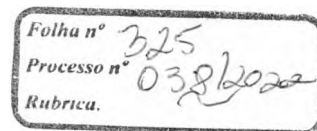 Folha nº 325
Processo nº 038/2022
Rubrica.